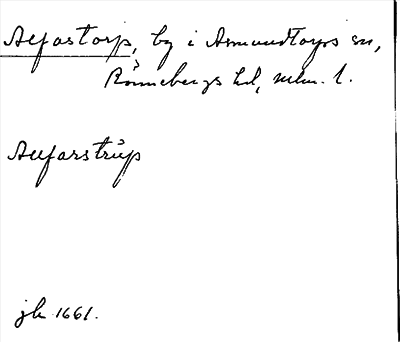 Alfastorp, by i Asmundtorps sn,
Rönnebergs hd, mlm. l.
Allfarstrup
jb 1661.